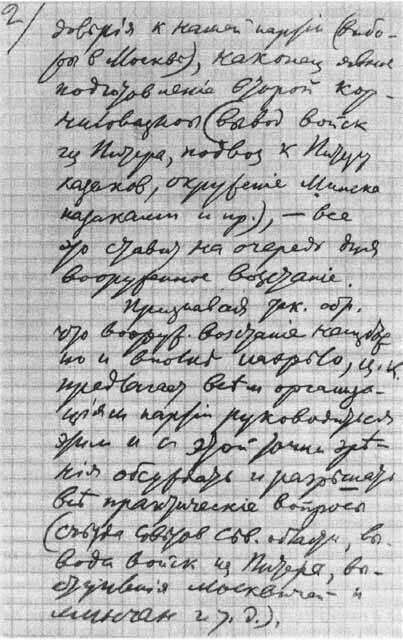 2/
довѣрія к нашей партіи (выбо-
ры в Москвѣ), наконец явное
подготовленіе второй кор-
ниловщины (вывод войск
из Питера, подвоз к Питеру
казаков, окруженіе Минска
казаками и пр.), — все
это ставит на очередь дня
вооруженное возстаніе.
Признавая т. обр.
что вооруж. возстаніе неизбѣж
но и вполнѣ назрѣло, Ц.К.
предлагает всѣм организа-
ціям партіи руководиться
этим и с этой точки зрѣ-
нія обсуждать и разрѣшать
всѣ практическіе вопросы
(съѣзда совѣтов сѣв. области, вы-
вода войск из Питера, вы-
ступленія москвичей и
минчан и т. д.).